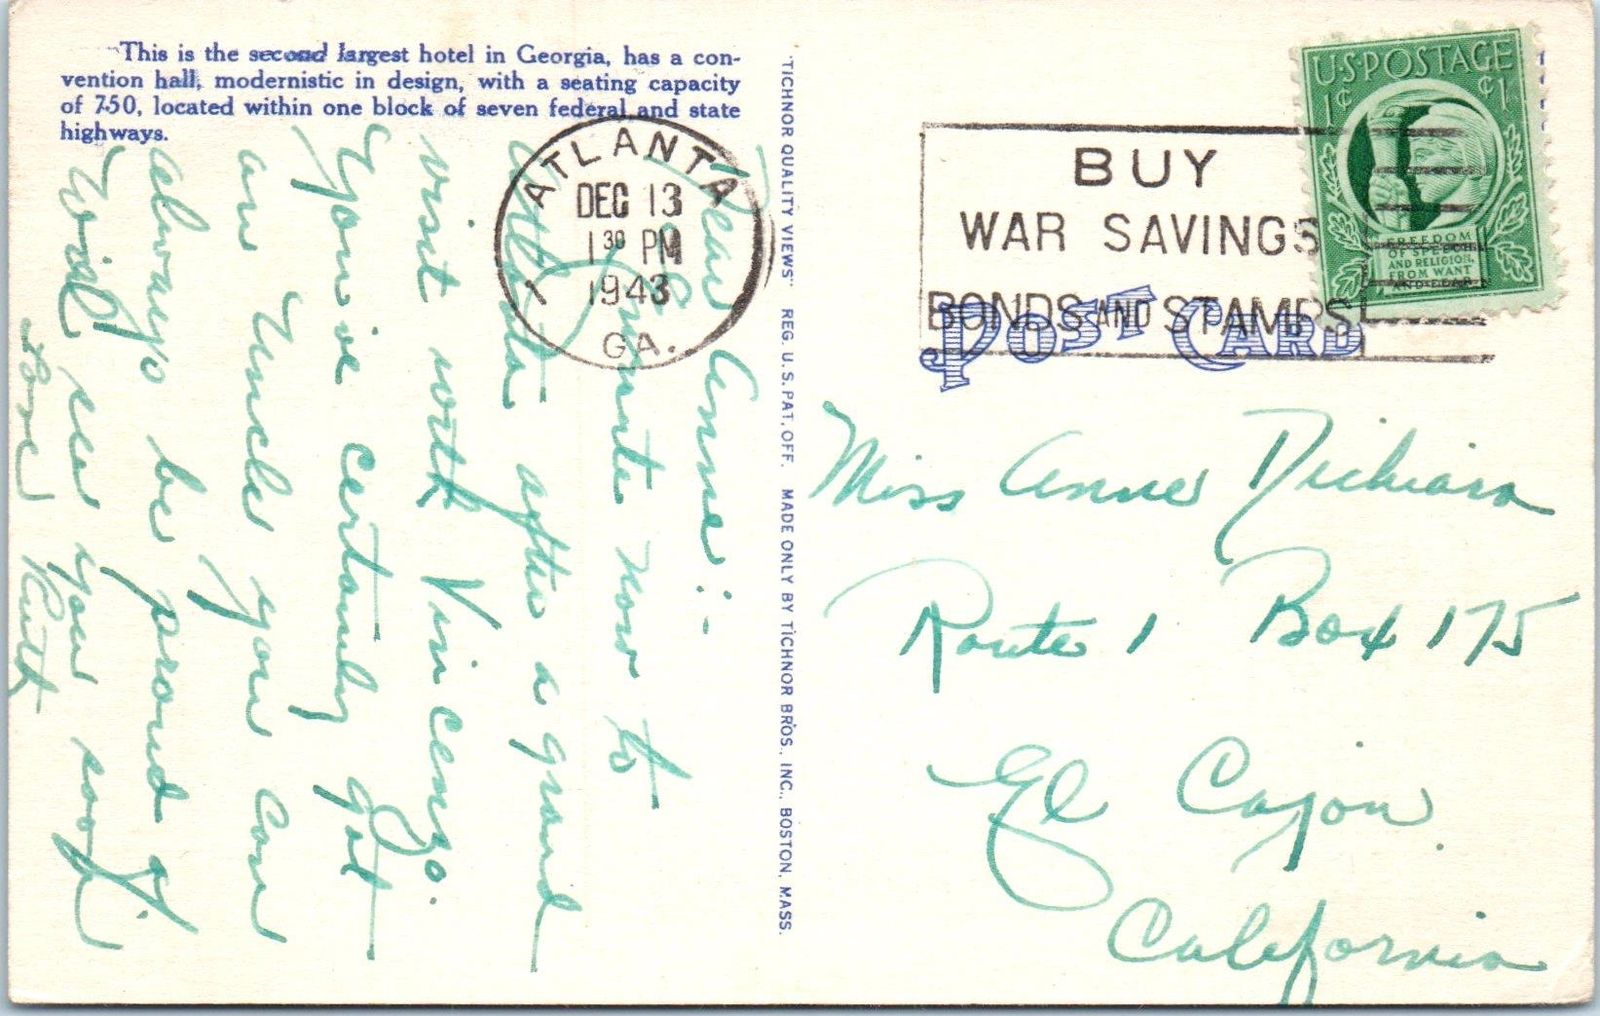 "This is the second largest hotel in Georgia, has a con-
vention hall, modernistic in design, with a seating capacity
of 750, located within one block of seven federal and state
highways.
Dear Anne:-
Enroute now to
Atlanta after a grand
visit with Vincenzo.
You've certainly got
an Uncle you can
always be proud of.
Will see you soon
Love Ruth
ATLANTA
DEC 13
1 30 PM
1943
GA.
1
"TICHNOR QUALITY VIEWS" REG. U. S. PAT. OFF. MADE ONLY BY TICHNOR BROS., INC., BOSTON, MASS.
BUY
WAR SAVINGS
BONDS AND STAMPS
U·S·POSTAGE
1¢ ¢1
FREEDOM
OF SPEECH
AND RELIGION,
FROM WANT
AND FEAR
POST CARD
Miss Anne Dichiara
Route 1 Box 175
El Cajon
California